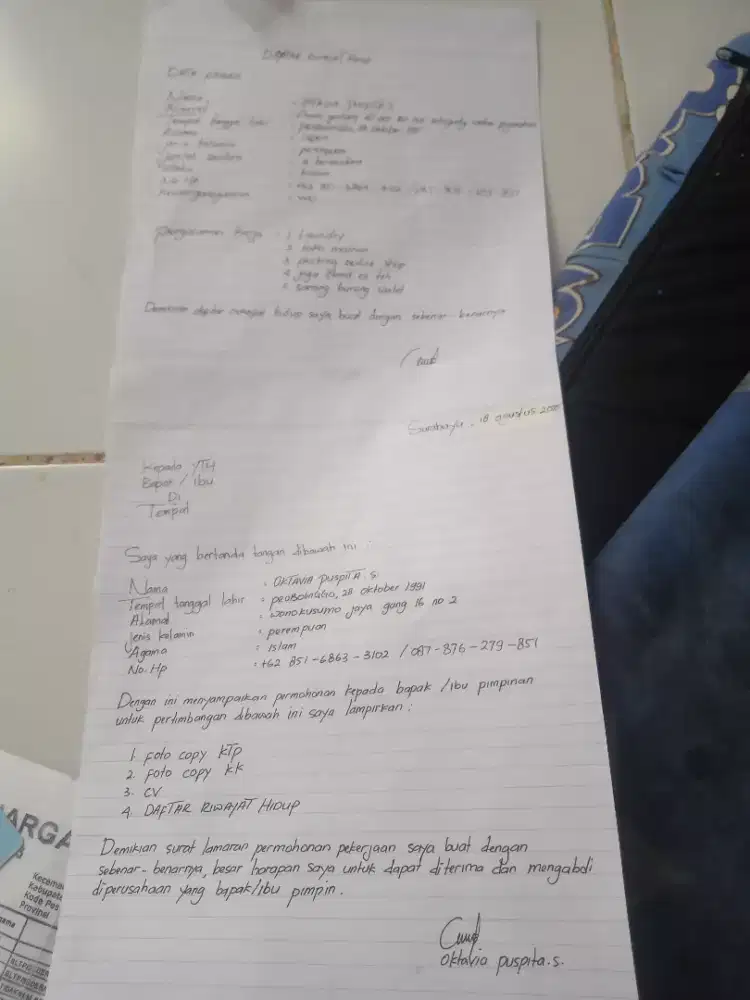 Daftar Riwayat Hidup
Data pribadi
Nama : Oktavia puspita s
Alamat
Tempat tanggal lahir
Agama : Islam
Jenis kelamin : perempuan
Jumlah saudara : bersaudara
Status
No Hp : +62 851-6863-3102
Kewarganegaraan : WNI
Pengalaman kerja : 1. Laundry
2. toko
3. packing online shop
4. jaga stand es teh
5. sarang burung walet
Demikian daftar riwayat hidup saya buat dengan sebenar-benarnya
Surabaya, 18 agustus
Kepada YTH
Bapat / ibu
Di
Tempat
Saya yang bertanda tangan dibawah ini :
Nama : OKTAVIA puspitA s
Tempat tanggal lahir : peobolinggo, 28 oktober 1991
Alamat : wonokusumo jaya gang 16 no 2
Jenis kelamin : perempuan
Agama : Islam
No. Hp : +62 851-6863-3102 / 087-876-279-851
Dengan ini menyampaikan permohonan kepada bapak /ibu pimpinan
untuk pertimbangan dibawah ini saya lampirkan :
1. foto copy KTP
2. foto copy KK
3. CV
4. DAFTAR RIWAYAT HIDUP
Demikian surat lamaran permohonan pekerjaan saya buat dengan
sebenar-benarnya, besar harapan saya untuk dapat diterima dan mengabdi
diperusahaan yang bapak/ibu pimpin.
Oktavia puspita.s.
ARGA
Kecamat
Kabupate
Kode Pos
Provinsi